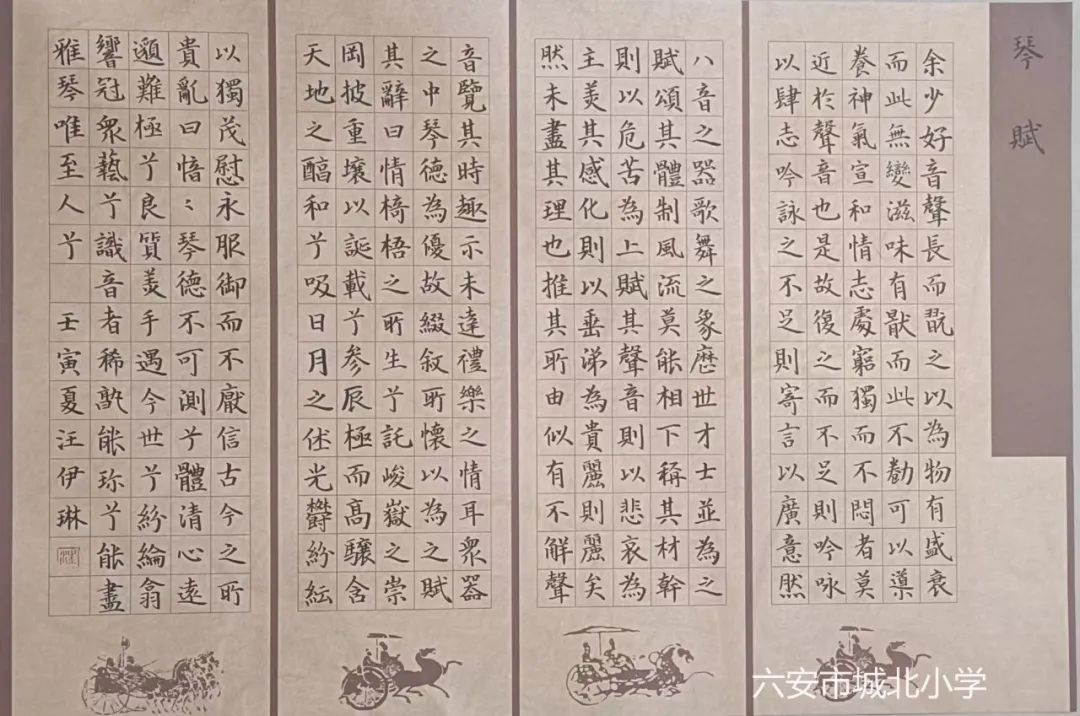 琴賦
余少好音聲長而翫之以為物有盛衰
而此無變滋味有猒而此不勌可以導
養神氣宣和情志處窮獨而不悶者莫
近於聲音也是故復之而不足則吟咏
以肆志吟詠之不足則寄言以廣意然
八音之器歌舞之象歷世才士並為之
賦頌其體制風流莫能相下稱其材幹
則以危苦為上賦其聲音則以悲哀為
主美其感化則以垂涕為貴麗則麗矣
然未盡其理也推其所由似有不解聲
音覽其時趣示未達禮樂之情耳衆器
之中琴德為優故綴敘所懷以為之賦
其辭曰情椅梧之所生兮託峻嶽之崇
岡披重壤以誕載兮参辰極而高驤含
天地之醕和兮吸日月之休光欝紛紜
以獨茂慰永服御而不厭信古今之所
貴亂曰愔〻琴德不可測兮體清心遠
邈難極兮良質美手遇今世兮紛綸翕
響冠衆藝兮識音者稀孰能珍兮能盡
雅琴唯至人兮 壬寅夏汪伊琳
六安市城北小学